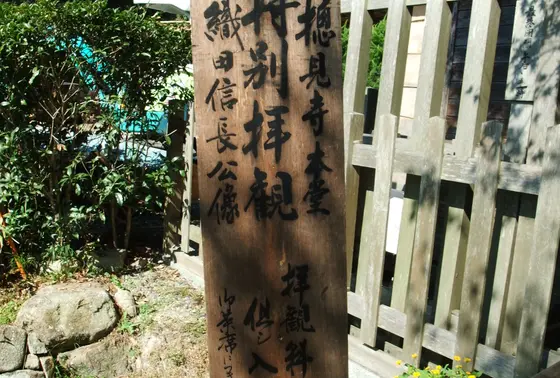 摠見寺本堂
特別拝観
織田信長公像
拝観料
但し入
御茶席